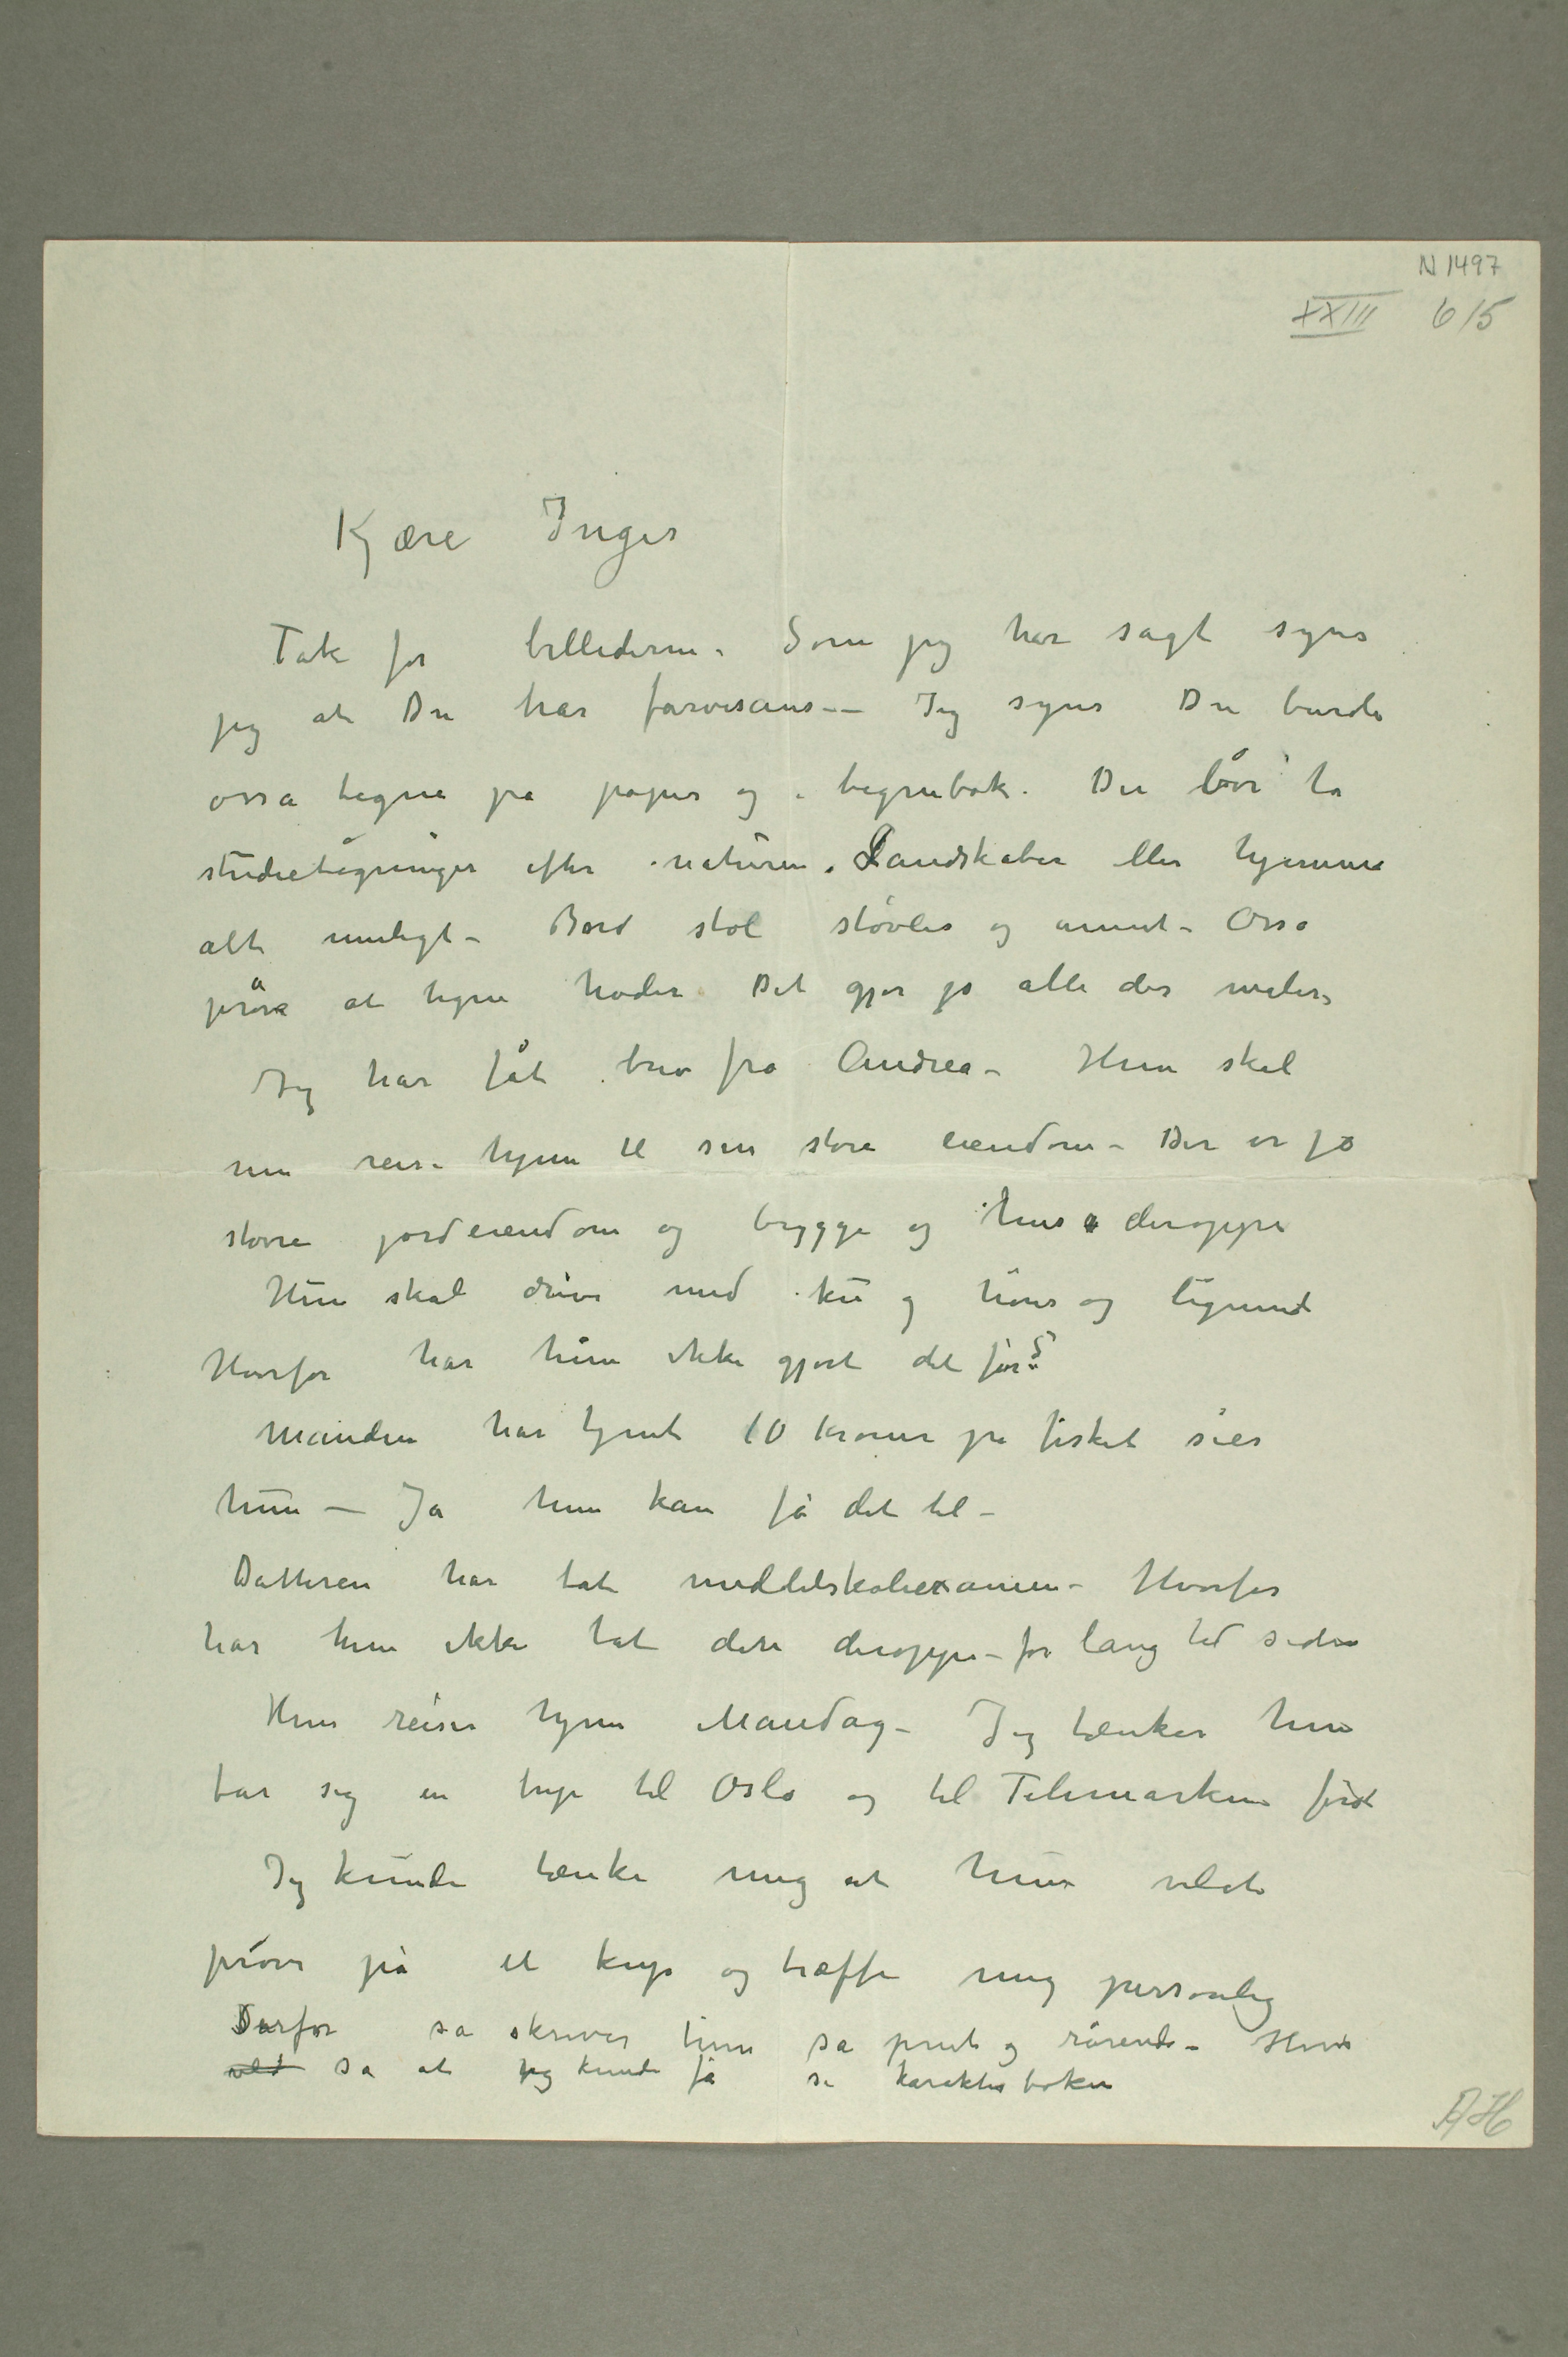 N 1497
XXIII 6/5
Kjære Inger
Tak for billederne. Som jeg har sagt synes
jeg at Du har farvesans – – Jeg synes Du burde
også tegne på papir og i tegnebok. Du bør ta
studietegninger efter naturen. Landskaber eller hjemme
alt muligt – Bord stol støvler og annet – Også
prøve at tegne hoder Det gjør jo alle der maler,
Jeg har fåt brev fra Andrea – Hun skal
nu reise hjem til sin store eiendom – Der er jo
større jordeiendom og brygge og hus deroppe
Hun skal drive med ku og høns og lignende
Hvorfor har hun ikke gjort det før?
Manden har tjent 10 kroner på fisket sier
hun – Ja hun kan få det til –
Datteren har tat middelskoleexamen – Hvorfor
har hun ikke tat den deroppe – for lang tid siden
Hun reiser hjem Mandag – Jeg tænker hun
tar sig en tur til Oslo og til Telemarken først
Jeg kunde tænke mig at hun vilde
prøve på et kup og træffe mig personlig
Derfor så skriver hun så pent og rørende – Hvis
vild så at jeg kunde få se karakterboken
AH